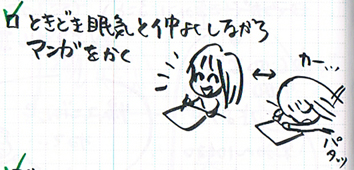 ときどき眠気と仲よくしながら
マンガをかく
カー…
パタッ